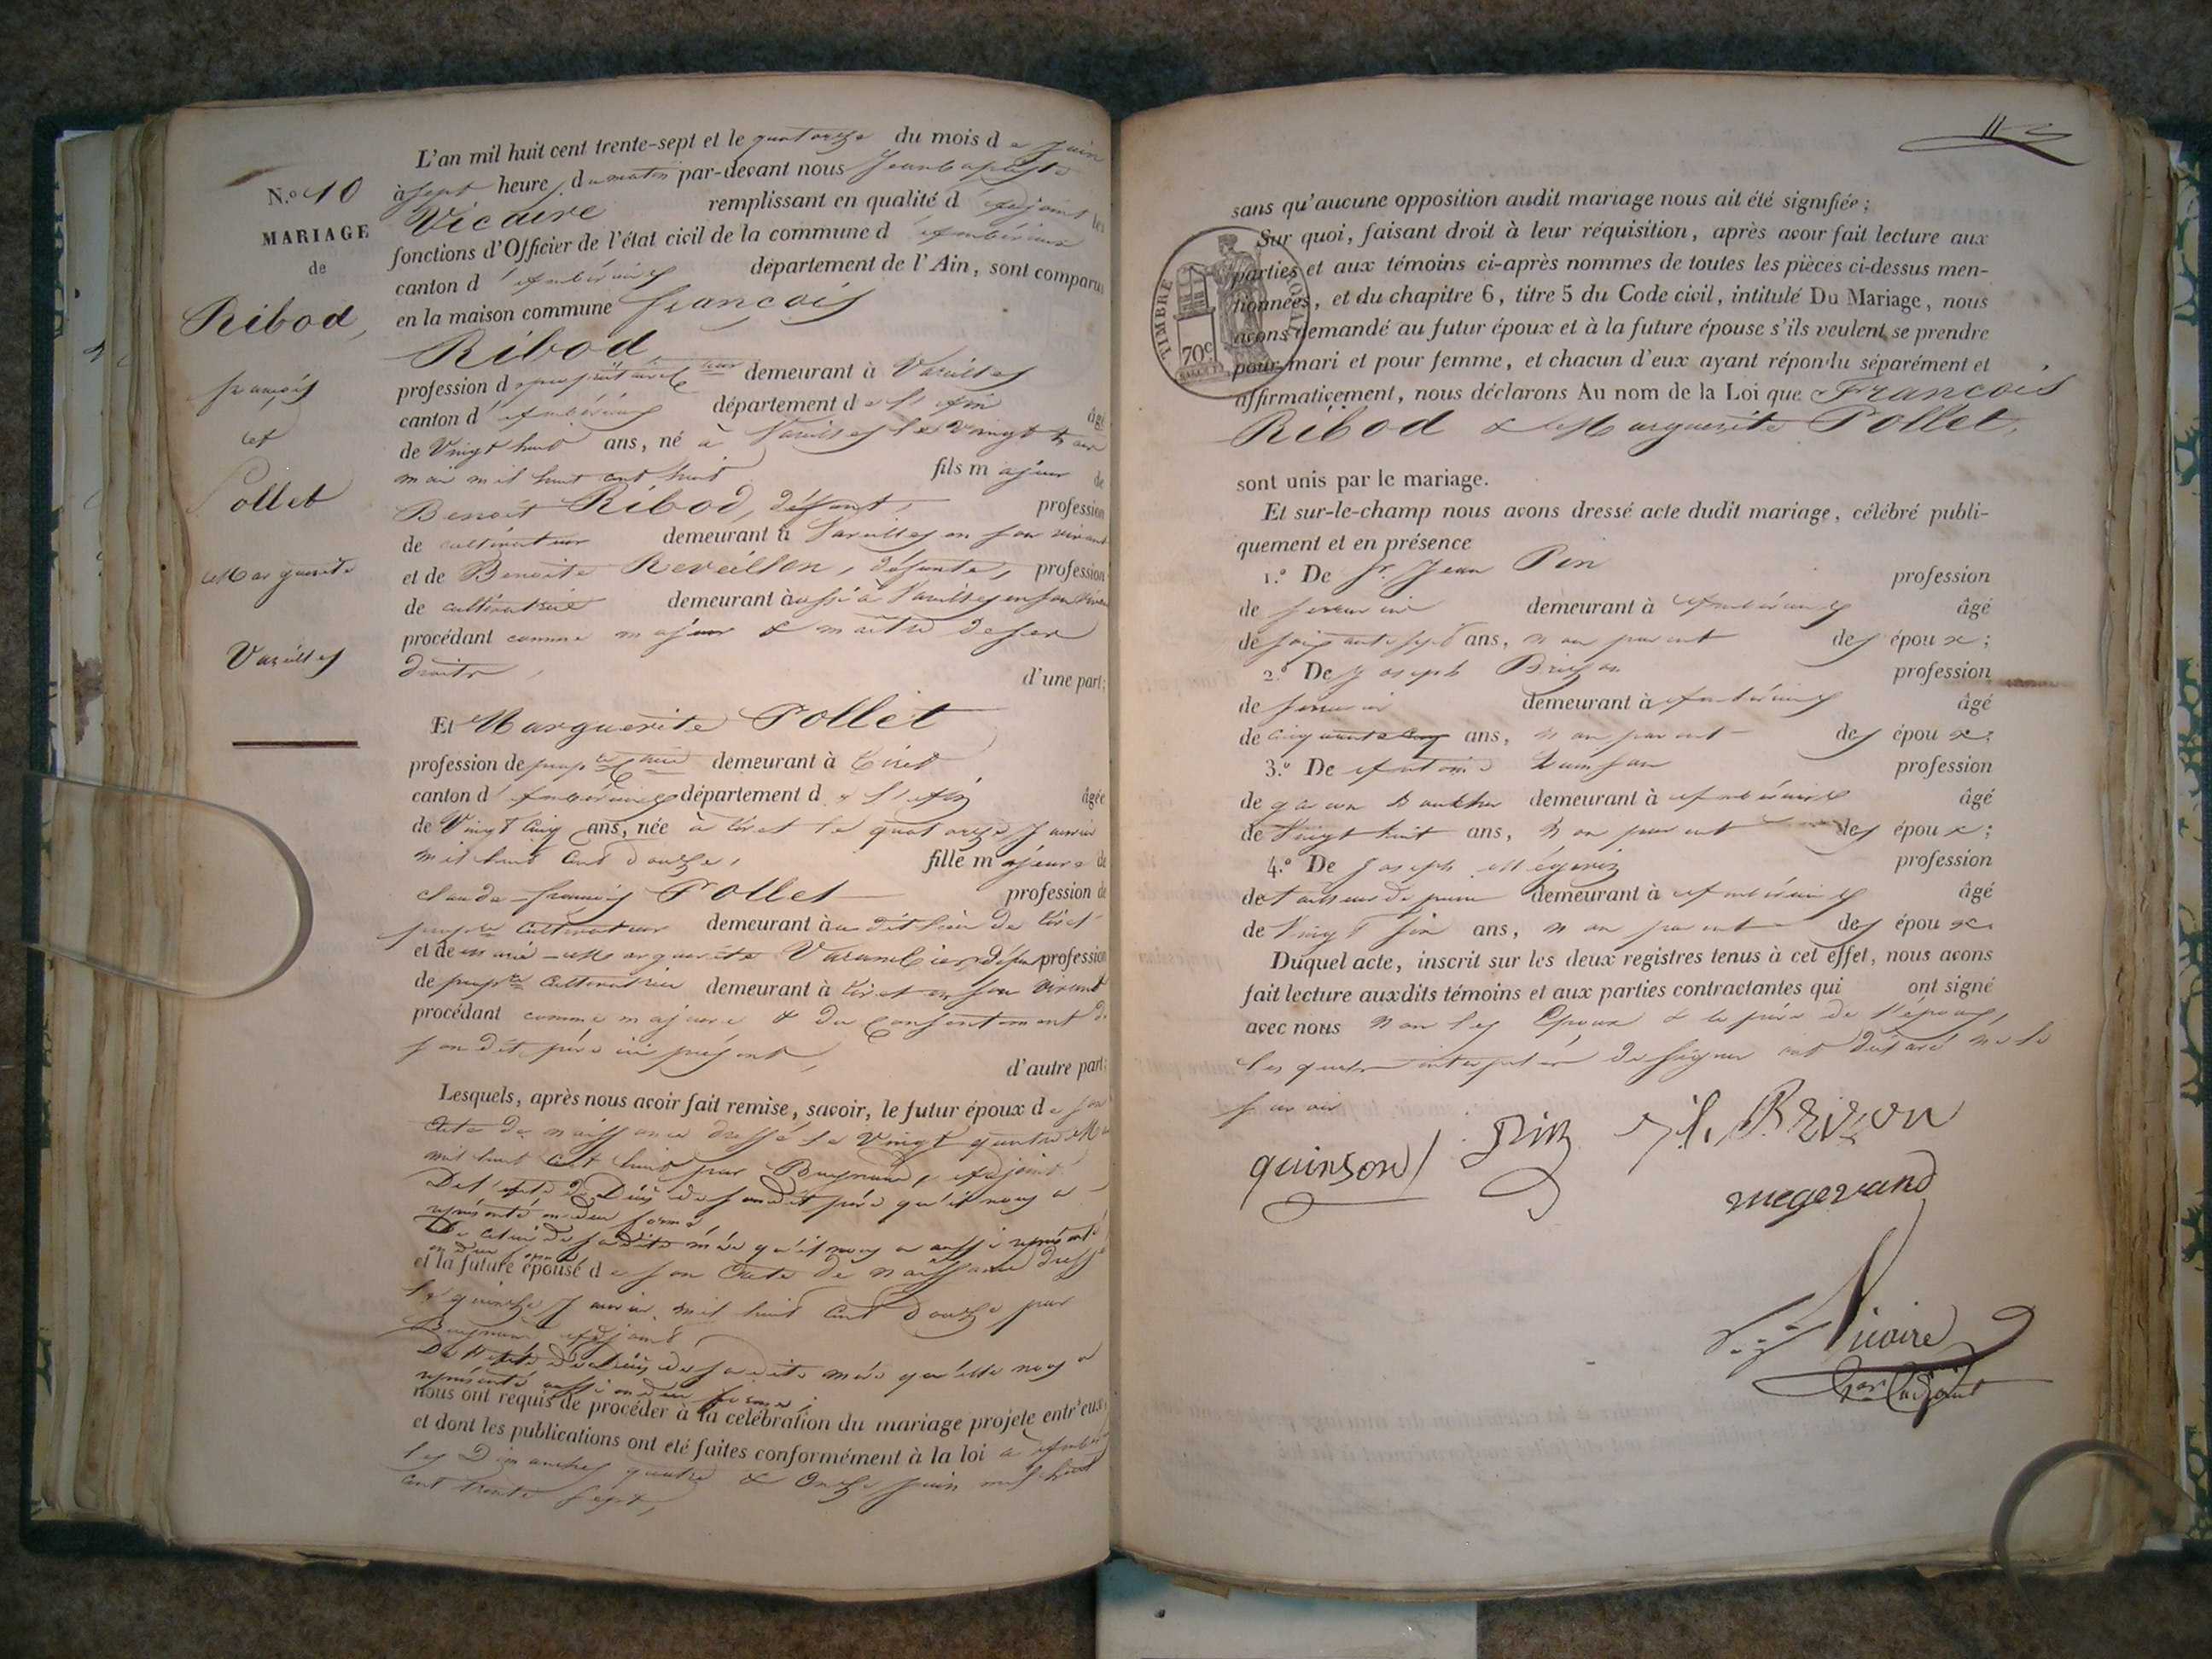 N.º 10
MARIAGE
de
Ribod,
françois
et
Pollet
Marguerite
Vareilles
L'an mil huit cent trente-sept et le quatorze du mois de Juin
à sept heures du matin par-devant nous Jeanbaptiste
Vicaire remplissant en qualité d'adjoint les
fonctions d'Officier de l'état civil de la commune d'Ambérieux
canton d'Ambérieux département de l'Ain, sont comparus
en la maison commune françois
Ribod
profession de propriétaire demeurant à Vareilles
canton d'Ambérieux département de l'Ain âgé
de Vingt huit ans, né à Vareilles le Vingt trois
mai mil huit cent huit fils majeur de
Benoit Ribod, défunt, profession
de cultivateur demeurant à Vareilles en son vivant
et de Benoite Reveillon, défunte, profession
de cultivatrice demeurant aussi à Vareilles en son vivant
procédant comme majeur & maître de ses
droits, d'une part;
Et Marguerite Pollet
profession de prop.re demeurant à Tiret
canton d'Ambérieux département de l'Ain âgée
de Vingt cinq ans, née à Tiret le quatorze Janvier
mil huit cent douze, fille majeure de
Claude-françois Pollet profession de
prop.re cultivateur demeurant au dit lieu de Tiret
et de marie-Marguerite Varambier, défunte profession
de prop.re cultivatrice demeurant à Tiret en son vivant
procédant comme majeure & du consentement de
son dit père ici présent, d'autre part;
Lesquels, après nous avoir fait remise, savoir, le futur époux de son
acte de naissance dressé le Vingt quatre Mai
mil huit cent huit par adjoint
De l'acte de Décès de son dit père qu'il nous a
représenté en due forme
De celui de sadite mère qu'il nous a aussi représenté
en due forme
et la future épouse de son acte de naissance dressé
le quinze Janvier mil huit cent douze par
adjoint
De l'acte de décès de sadite mère qu'elle nous a
représenté aussi en due forme,
nous ont requis de procéder à la célébration du mariage projeté entr'eux,
et dont les publications ont été faites conformément à la loi à
les Dimanches quatre & Onze juin mil huit
cent trente sept,
11
sans qu'aucune opposition audit mariage nous ait été signifiée;
Sur quoi, faisant droit à leur réquisition, après avoir fait lecture aux
parties et aux témoins ci-après nommés de toutes les pièces ci-dessus men-
tionnées, et du chapitre 6, titre 5 du Code civil, intitulé Du Mariage, nous
avons demandé au futur époux et à la future épouse s'ils veulent se prendre
pour mari et pour femme, et chacun d'eux ayant répondu séparément et
affirmativement, nous déclarons Au nom de la Loi que François
Ribod & Marguerite Pollet,
sont unis par le mariage.
Et sur-le-champ nous avons dressé acte dudit mariage, célébré publi-
quement et en présence
1.º De Sr. Jean Pin profession
de serrurier demeurant à Ambérieux âgé
de soixante sept ans, non parent des époux;
2.º De Joseph Brizon profession
de serrurier demeurant à Ambérieux âgé
de cinquante cinq ans, non parent des époux;
3.º De Antoine Quinson profession
de garçon Boucher demeurant à Ambérieux âgé
de Vingt huit ans, non parent des époux;
4.º De Joseph profession
de tailleur de pierre demeurant à Ambérieux âgé
de Vingt six ans, non parent des époux.
Duquel acte, inscrit sur les deux registres tenus à cet effet, nous avons
fait lecture auxdits témoins et aux parties contractantes qui ont signé
avec nous non les Epoux & le père de l'épouse,
lesquels interpelés de signer ont déclaré ne le
savoir
quinson Pin Brizon
megevand
Vicaire
TIMBRE ROYAL
70c